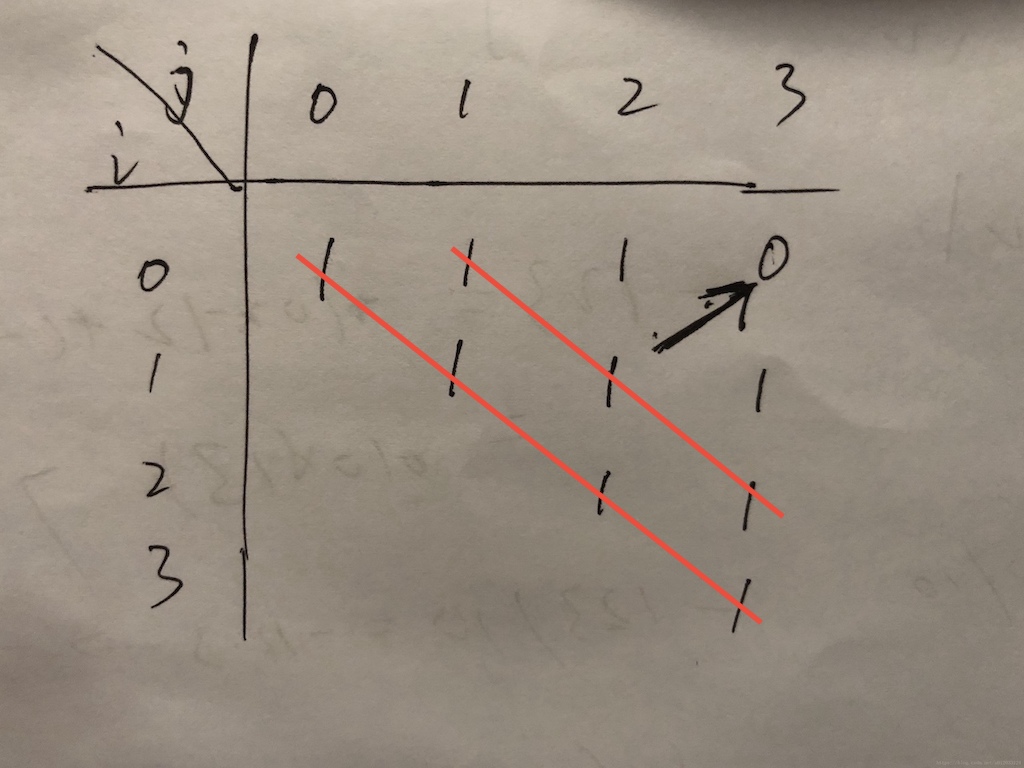 j
i 0 1 2 3
0 1 1 1 0
1 1 1 1
2 1 1
3 1